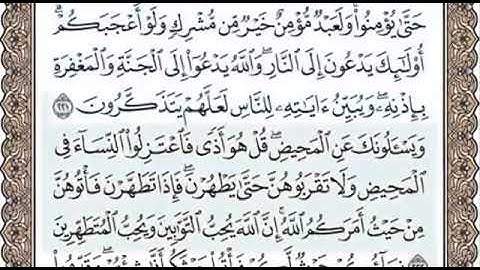 حَتَّىٰ يُؤْمِنُوا۟ ۚ وَلَعَبْدٌ مُّؤْمِنٌ خَيْرٌ مِّن مُّشْرِكٍ وَلَوْ أَعْجَبَكُمْ ۗ
أُو۟لَـٰٓئِكَ يَدْعُونَ إِلَى ٱلنَّارِ ۖ وَٱللَّهُ يَدْعُوٓا۟ إِلَى ٱلْجَنَّةِ وَٱلْمَغْفِرَةِ
بِإِذْنِهِۦ ۖ وَيُبَيِّنُ ءَايَـٰتِهِۦ لِلنَّاسِ لَعَلَّهُمْ يَتَذَكَّرُونَ ٢٢١
وَيَسْـَٔلُونَكَ عَنِ ٱلْمَحِيضِ ۖ قُلْ هُوَ أَذًى فَٱعْتَزِلُوا۟ ٱلنِّسَآءَ فِى
ٱلْمَحِيضِ ۖ وَلَا تَقْرَبُوهُنَّ حَتَّىٰ يَطْهُرْنَ ۖ فَإِذَا تَطَهَّرْنَ فَأْتُوهُنَّ
مِنْ حَيْثُ أَمَرَكُمُ ٱللَّهُ ۚ إِنَّ ٱللَّهَ يُحِبُّ ٱلتَّوَّٰبِينَ وَيُحِبُّ ٱلْمُتَطَهِّرِينَ